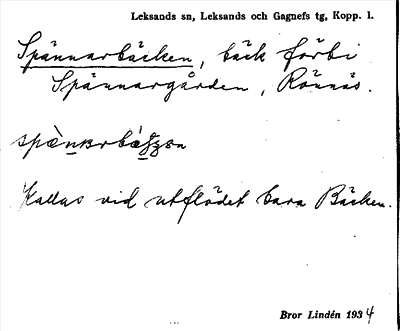 Leksands sn, Leksands och Gagnefs tg, Kopp. l.
Spännarbäcken, bäck förbi
Spännargården, Rönnäs.
Kallas vid utflödet bara Bäcken.
Bror Lindén 1934